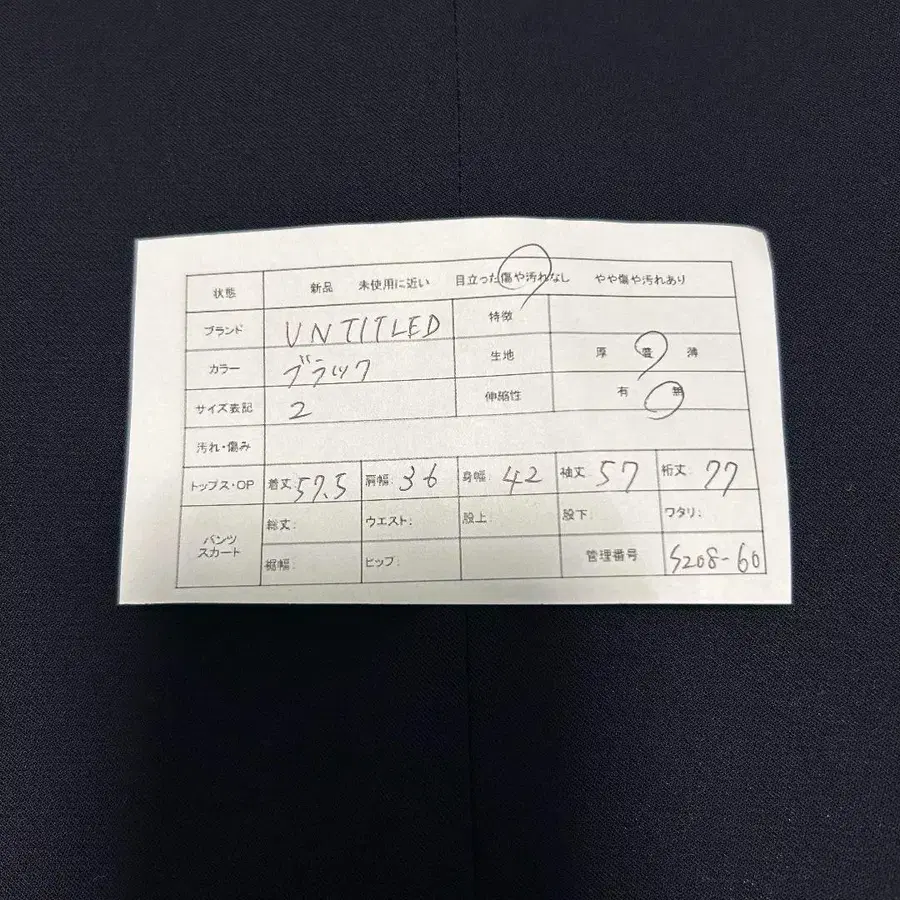 状態 新品 未使用に近い 目立った傷や汚れなし やや傷や汚れあり
ブランド UNTITLED 特徴
カラー ブラック 生地 厚 普 薄
サイズ表記 2 伸縮性 有 無
汚れ・傷み
トップス・OP 着丈: 57.5 肩幅: 36 身幅: 42 袖丈: 57 裄丈: 77
パンツ スカート 総丈: ウエスト: 股上: 股下: ワタリ:
裾幅: ヒップ: 管理番号 S208-60